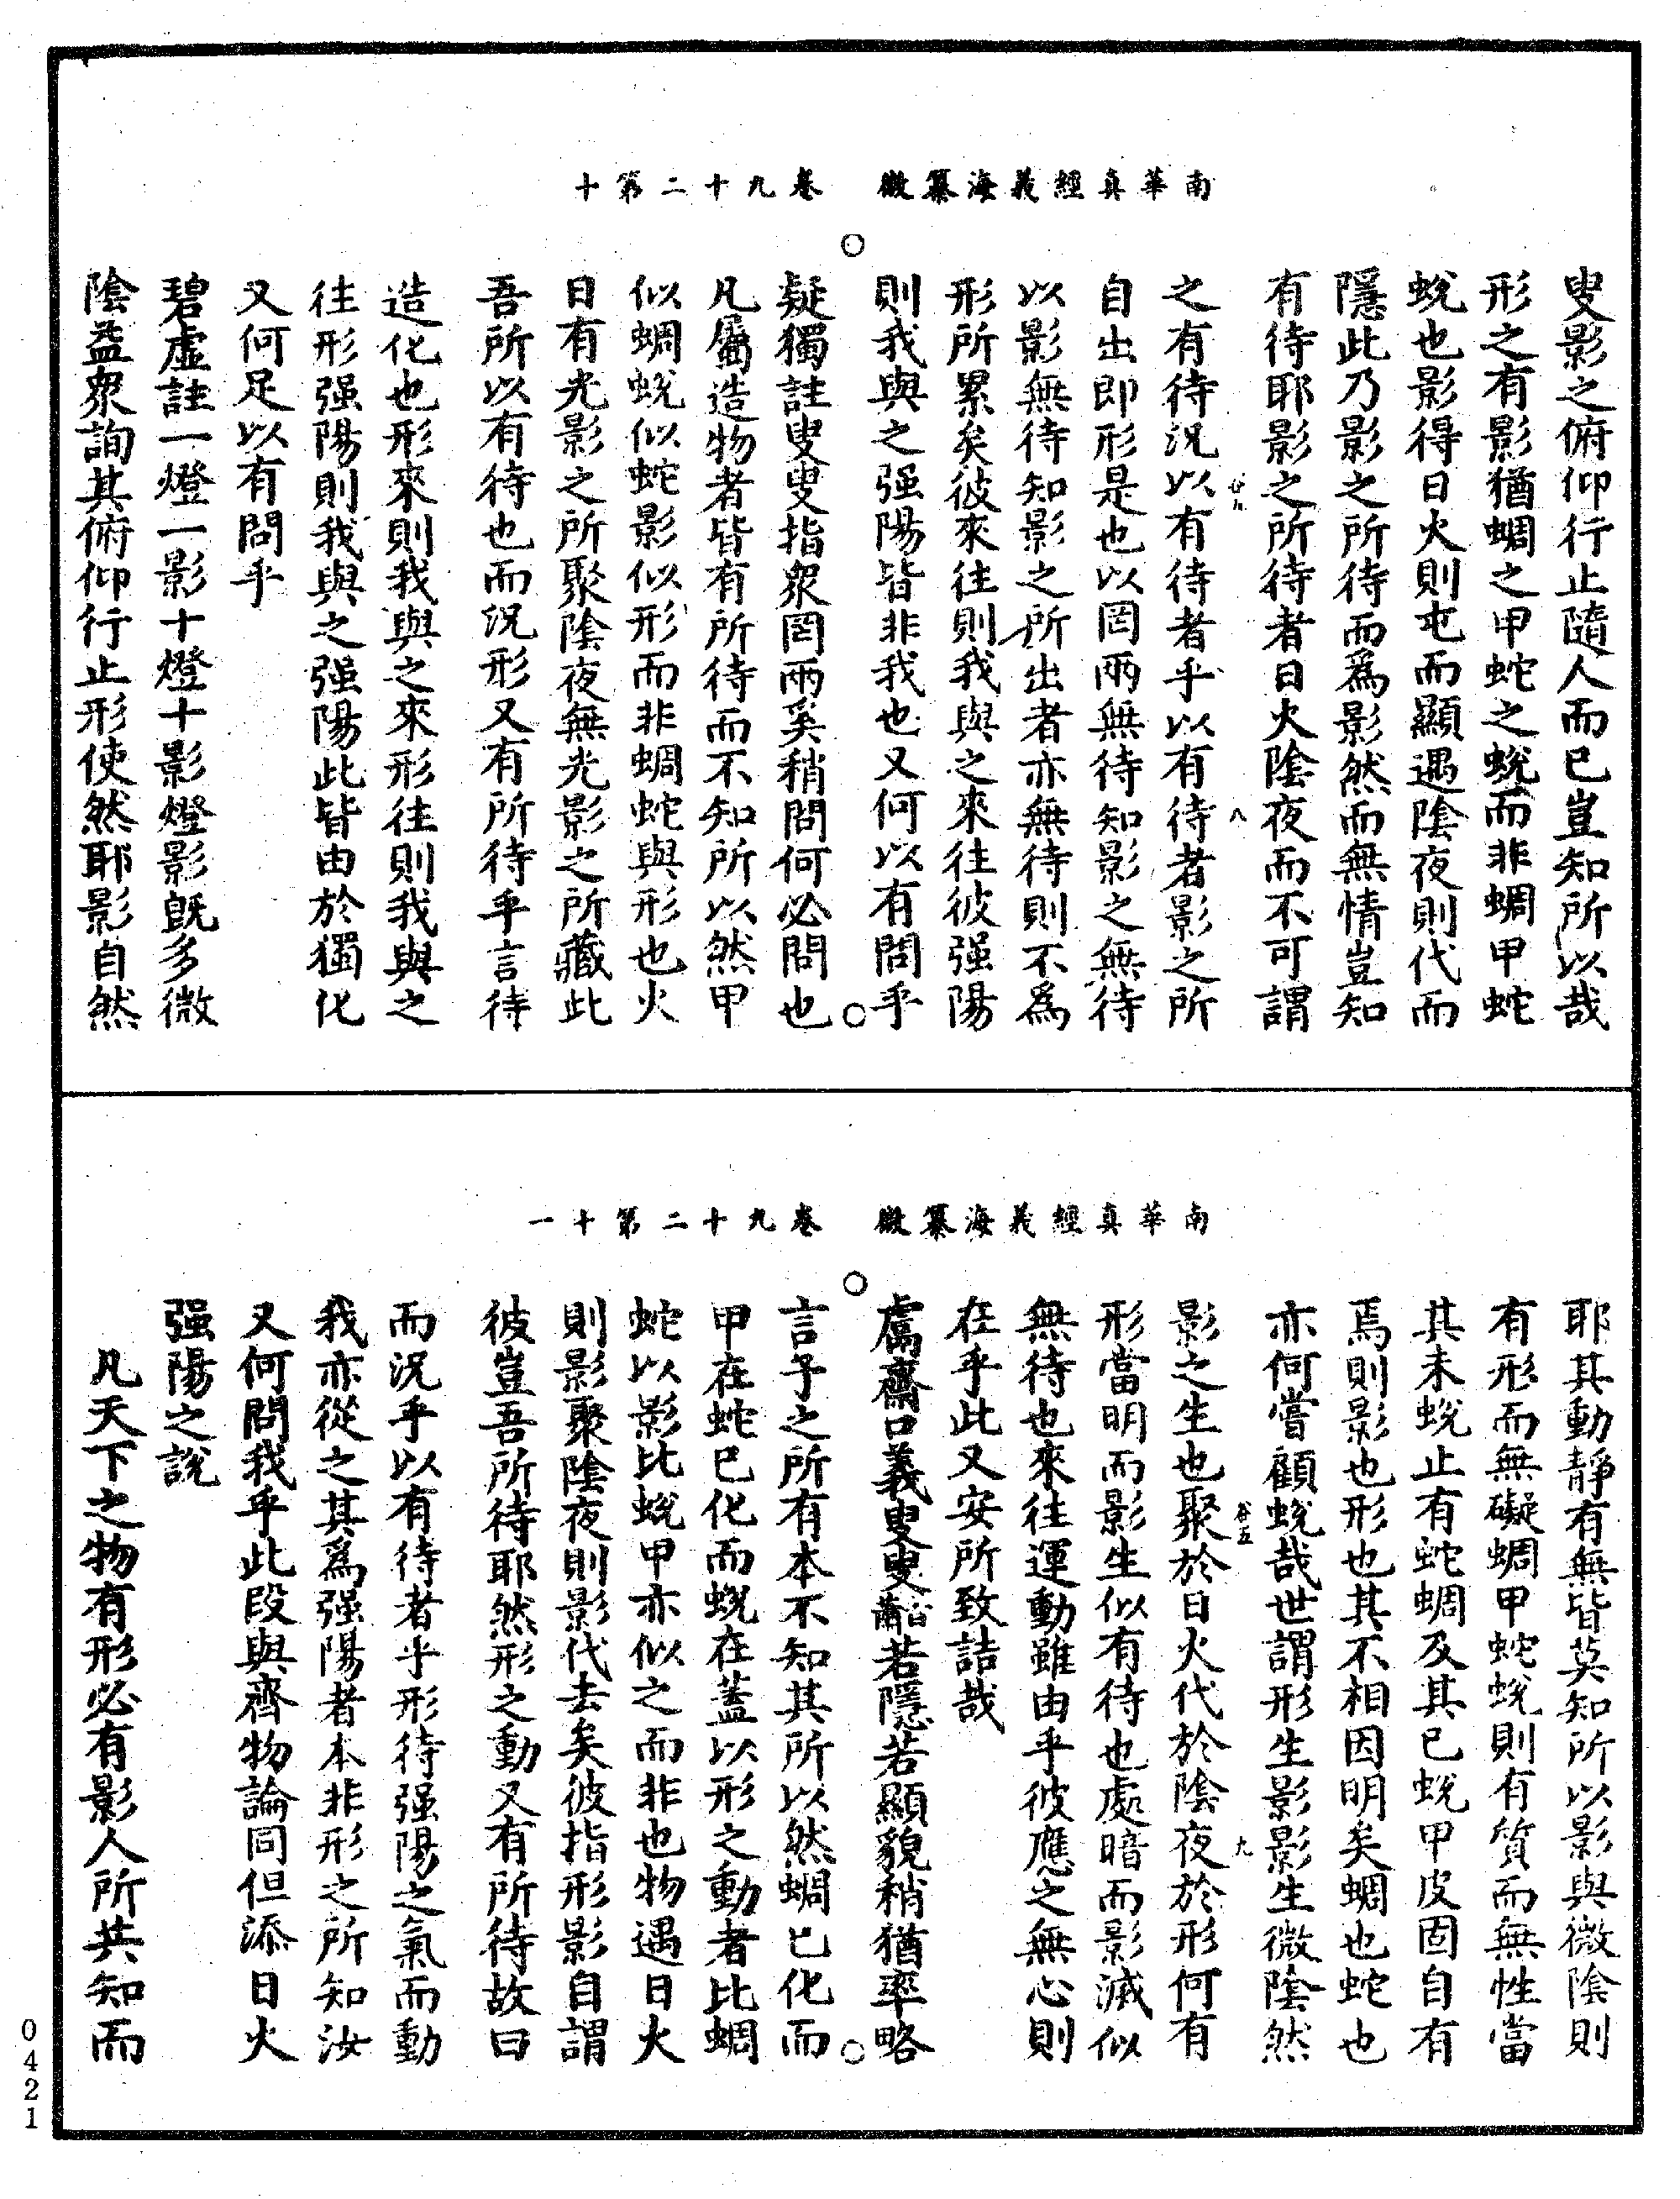 南華真經義海纂微　卷九十二第十
叟影之俯仰行止隨人而已豈知所以哉
形之有影猶蜩之甲蛇之蛻而非蜩甲蛇
蛻也影得日火則屯而顯遇陰夜則代而
隱此乃影之所待而爲影然而無情豈知
有待耶影之所待者日火陰夜而不可謂
之有待況以有待者乎以有待者影之所
八
自出即形是也以罔兩無待知影之無待
以影無待知影之所出者亦無待則不爲
形所累矣彼來往則我與之來往彼强陽
則我與之强陽皆非我也又何以有問乎
疑獨註叟叟指衆罔兩奚稍問何必問也
凡屬造物者皆有所待而不知所以然甲
似蜩蛻似蛇影似形而非蜩蛇與形也火
日有光影之所聚陰夜無光影之所藏此
吾所以有待也而況形又有所待乎言待
造化也形來則我與之來形往則我與之
往形强陽則我與之强陽此皆由於獨化
又何足以有問乎
碧虛註一燈一影十燈十影燈影既多微
陰益衆詢其俯仰行止形使然耶影自然
南華真經義海纂微　卷九十二第十一
耶其動靜有無皆莫知所以影與微陰則
有形而無礙蜩甲蛇蛻則有質而無性當
其未蛻止有蛇蜩及其已蛻甲皮固自有
焉則影也形也其不相因明矣蜩也蛇也
亦何嘗顧蛻哉世謂形生影影生微陰然
影之生也聚於日火代於陰夜於形何有
谷五　九
形當明而影生似有待也處暗而影滅似
無待也來往運動雖由乎彼應之無心則
在乎此又安所致詰哉
鬳齋口義叟叟音蕭若隱若顯貌稍猶率略
言予之所有本不知其所以然蜩已化而
甲在蛇已化而蛻在蓋以形之動者比蜩
蛇以影比蛻甲亦似之而非也物遇日火
則影聚陰夜則影代去矣彼指形影自謂
彼豈吾所待耶然形之動又有所待故曰
而況乎以有待者乎形待强陽之氣而動
我亦從之其爲强陽者本非形之所知汝
又何問我乎此段與齊物論同但添日火
强陽之說
凡天下之物有形必有影人所共知而
0421